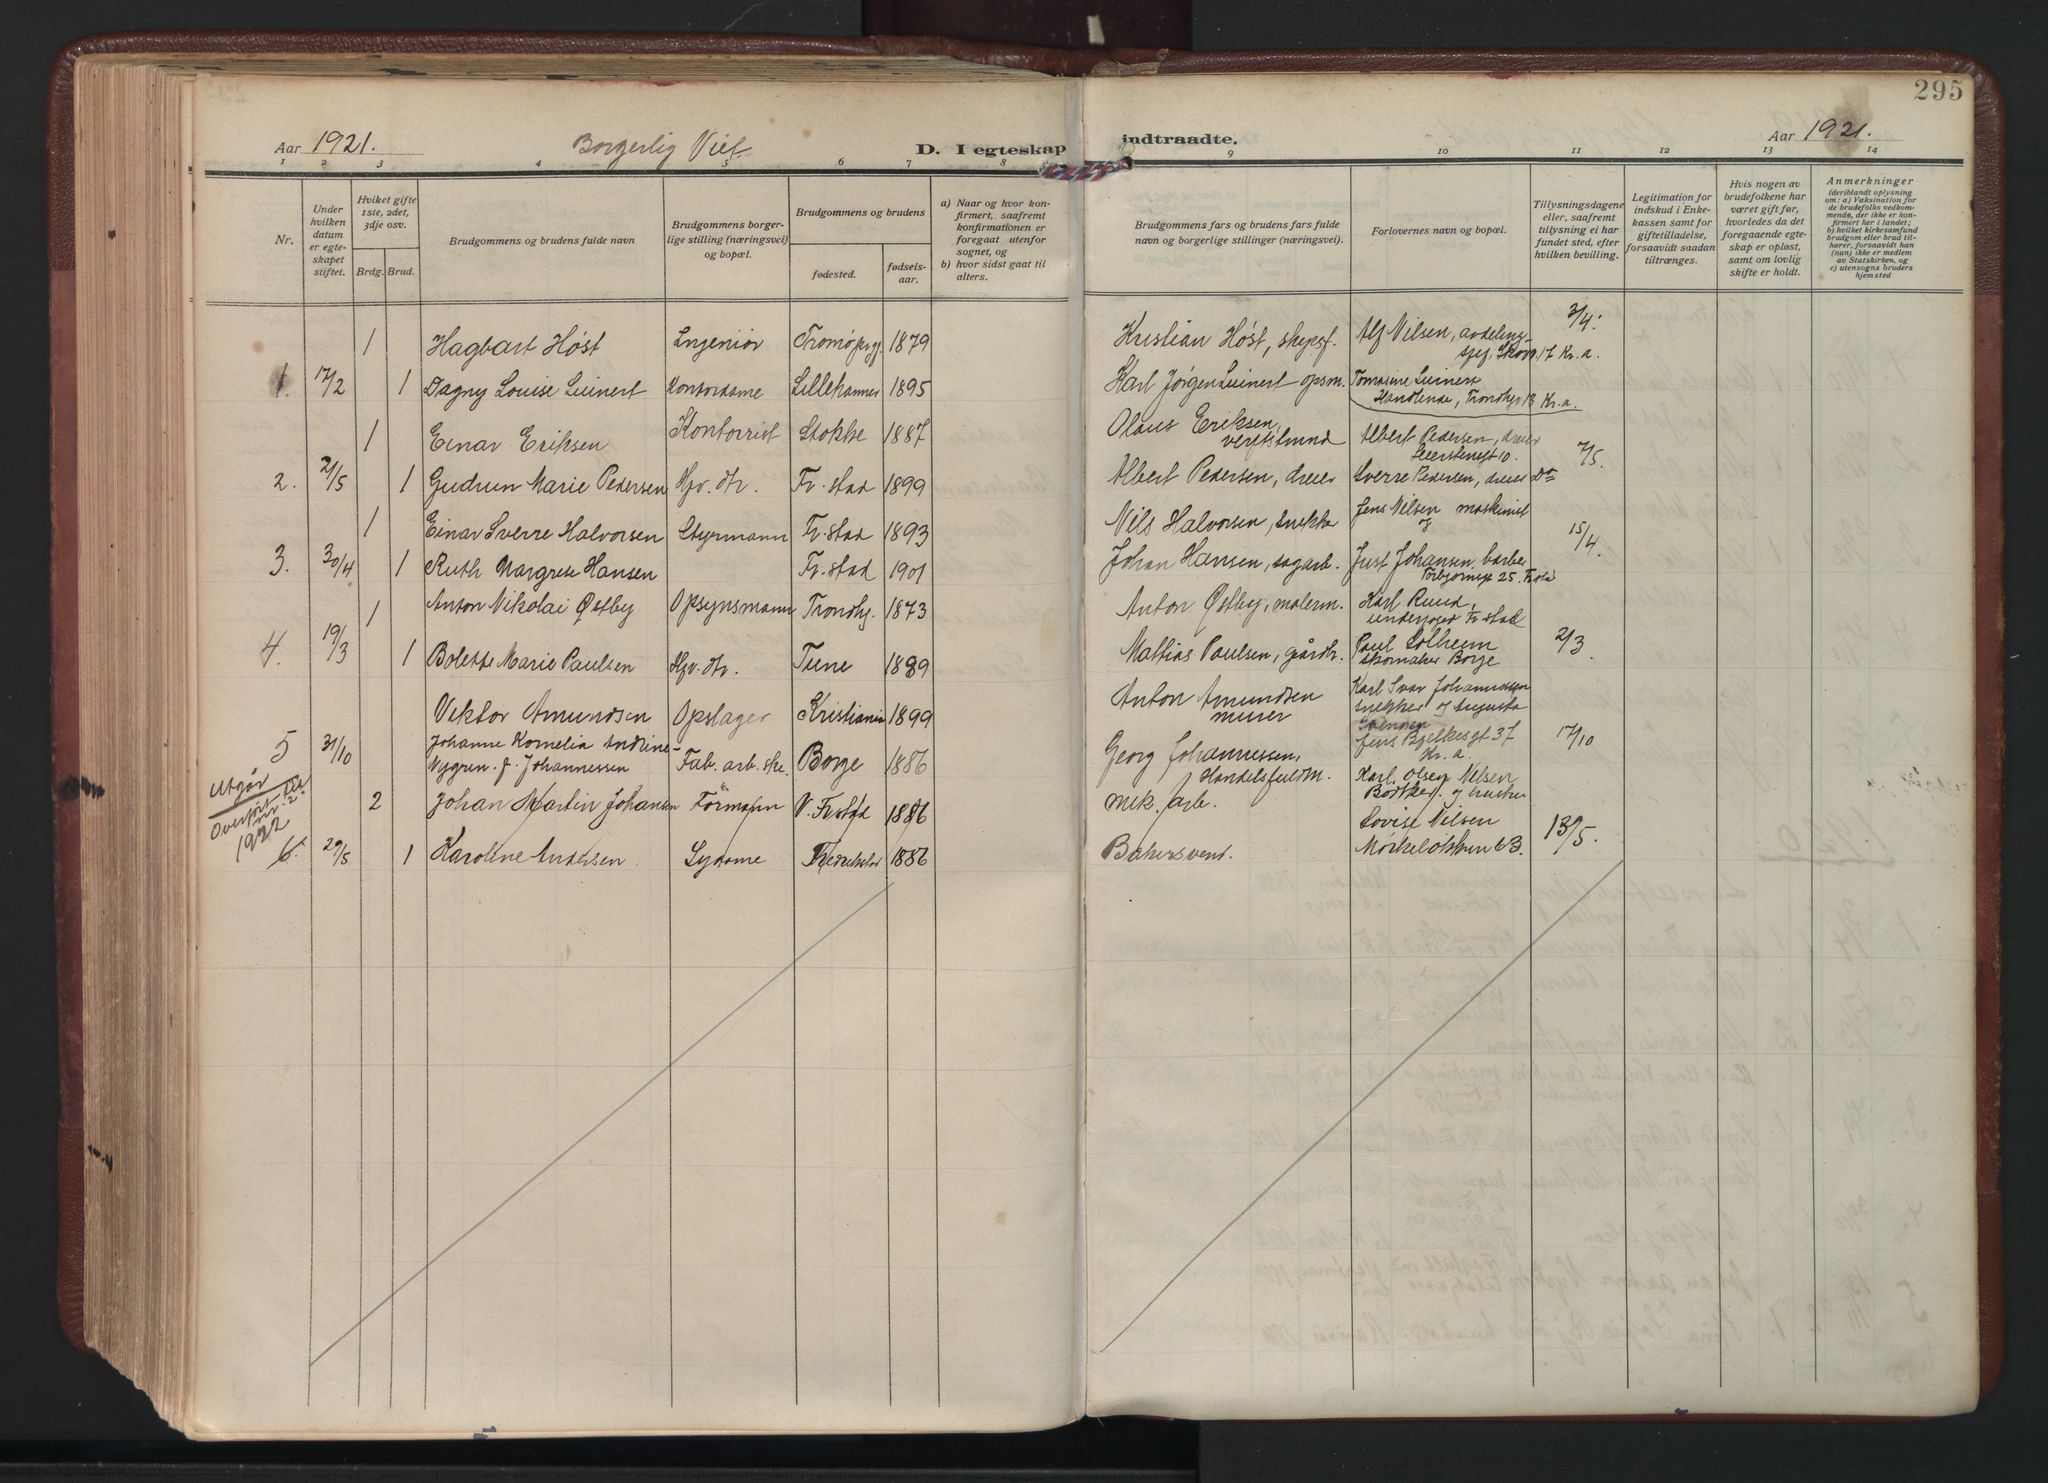 295
Aar 1921.
Borgerlig Viet
D. I egteskap
indtraadte.
Aar 1921.
1 2 3 4 5 6 7 8 9 10 11 12 13 14
Nr.
Under hvilken datum er egte-skapet stiftet.
Hviket gifte 1ste, 2det, 3dje osv.
Brdg. Brud.
Brudgommens og brudens fulde navn
Brudgommens borger-lige stilling (næringsvei) og bopæl.
Brudgommens og brudens
fødested.
fødsels-aar.
a) Naar og hvor kon-firmert, saafremt konfirmationen er foregaat utenfor sognet, og
b) hvor sidst gaat til alters.
Brudgommens fars og brudens fars fulde navn og borgerlige stillinger (næringsvei).
Forlovernes navn og bopæl.
Tillysningsdagene eller, saafremt tillysning ei har fundet sted, efter hvilken bevilling.
Legitimation for indskud i Enke-kassen samt for giftetilladelse, forsaavidt saadan tiltrænges.
Hvis nogen av brudefolkene har været gift før, hvorledes da det foregaaende egte-skap er opløst, samt om lovlig skifte er holdt.
Anmerkninger
(deriblandt oplysning om: a) Vaksination for de brudefolks vedkom-mende, der ikke er kon-firmert her i landet; b) hvilket kirkesamfund brudgom eller brud til-hører, forsaavidt han (hun) ikke er medlem av Statskirken, og c) utensogns bruders hjemsted
1 Hagbart Høst Ingeniør Tromø prgj. 1879 Kristian Høst, skipsf. Alf Nilsen, avdelings- 3/4.
sjef, Skovv. 17 Kr.a.
1. 17/2 1 Dagny Louise Leinert Kontordame Lillehammer 1895 Karl Jørgen Leinert opsm. Tomasine Leinert
Handlende, Trondhgt 13 Kr.a.
1 Einar Eriksen Kontorist Stokke 1887 Olaus Eriksen, Albert Pedersen, dreier
verftsbund 10. 7/5.
2. 21/5 1 Gudrun Marie Pedersen Hjv. dtr. Fr.stad 1899 Albert Pedersen, dreier Sverre Pedersen, dreier Do
1 Einar Sverre Halvorsen Styrmann Fr.stad 1893 Nils Halvorsen, snekker Jens Nilsen maskinist
og 15/4.
3. 30/4 1 Ruth Margrete Hansen Fr.stad 1901 Johan Hansen, sagarb. Just Johansen, barber
Torbjørnsgt 25. Fr.stad
1 Anton Nikolai Østby Opsynsmann Trondhj. 1873 Anton Østby, malerm. Karl Ruud,
underfoged Fr.stad
4. 19/3 1 Bolette Marie Paulsen Hjv. dtr. Tune 1889 Mathias Paulsen, gårdbr. Paul Solheim 2/3.
skomaker Borge
Viktor Amundsen Opslager Kristiania 1899 Anton Amundsen Karl Ivar Johannessen
murer snekker og Augusta
Svendsen
5 31/10 Johanne Kornelia Andrine Fab. arb. ske. Borge 1886 Georg Johannessen, Jens Bjelkesgt 37 17/10
Nygren f. Johannessen Handelsfuldm. Kr.a.
Utgår
Overført til
nr. 2.
1922
2 Johan Martin Johansen Formann V. Fr.stad 1886 Mek. arb. Karl Olsen Nilsen
Bødtker og hustru
6. 29/5 1 Karoline Andersen Sydame Fredrikshald 1886 Bakersvend. Lovise Nilsen 13/5.
Mørkeløkken 6B.